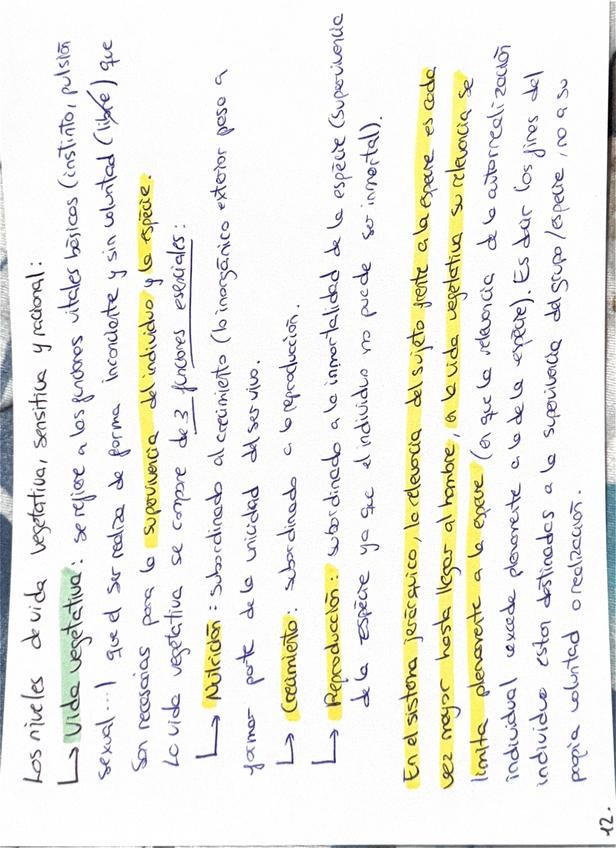 Los niveles de vida vegetativa, sensitiva y racional:
↳ Vida vegetativa: se refiere a las funciones vitales básicas (instinto, pulsión
sexual...) que el ser realiza de forma inconciente y sin voluntad (libre) que
Son necesarias para la supervivencia del individuo y la espècie.
La vida vegetativa se compone de 3 funciones esenciales:
↳ Nutrición: subordinado al crecimiento (lo inorgánico exterior pasa a
formar parte de la unicidad del ser vivo.
↳ Crecimiento: subordinado a la reproducción.
↳ Reproducción: subordinado a la inmortalidad de la espècie (Supervivencia
de la espècie ya que el individuo no puede ser inmortal).
En el sistema jerárquico, la relevancia del sujeto frente a la especie es cada
vez mayor hasta llegar al hombre, en la vida vegetativa su relevancia se
limita plenamente a la especie (en que la relevancia de la autorrealización
individual excede plenamente a la de la espècie). Es decir los fines del
individuo estan destinados a la supervivencia del grupo/especie, no a su
propia voluntad o realización.
12.